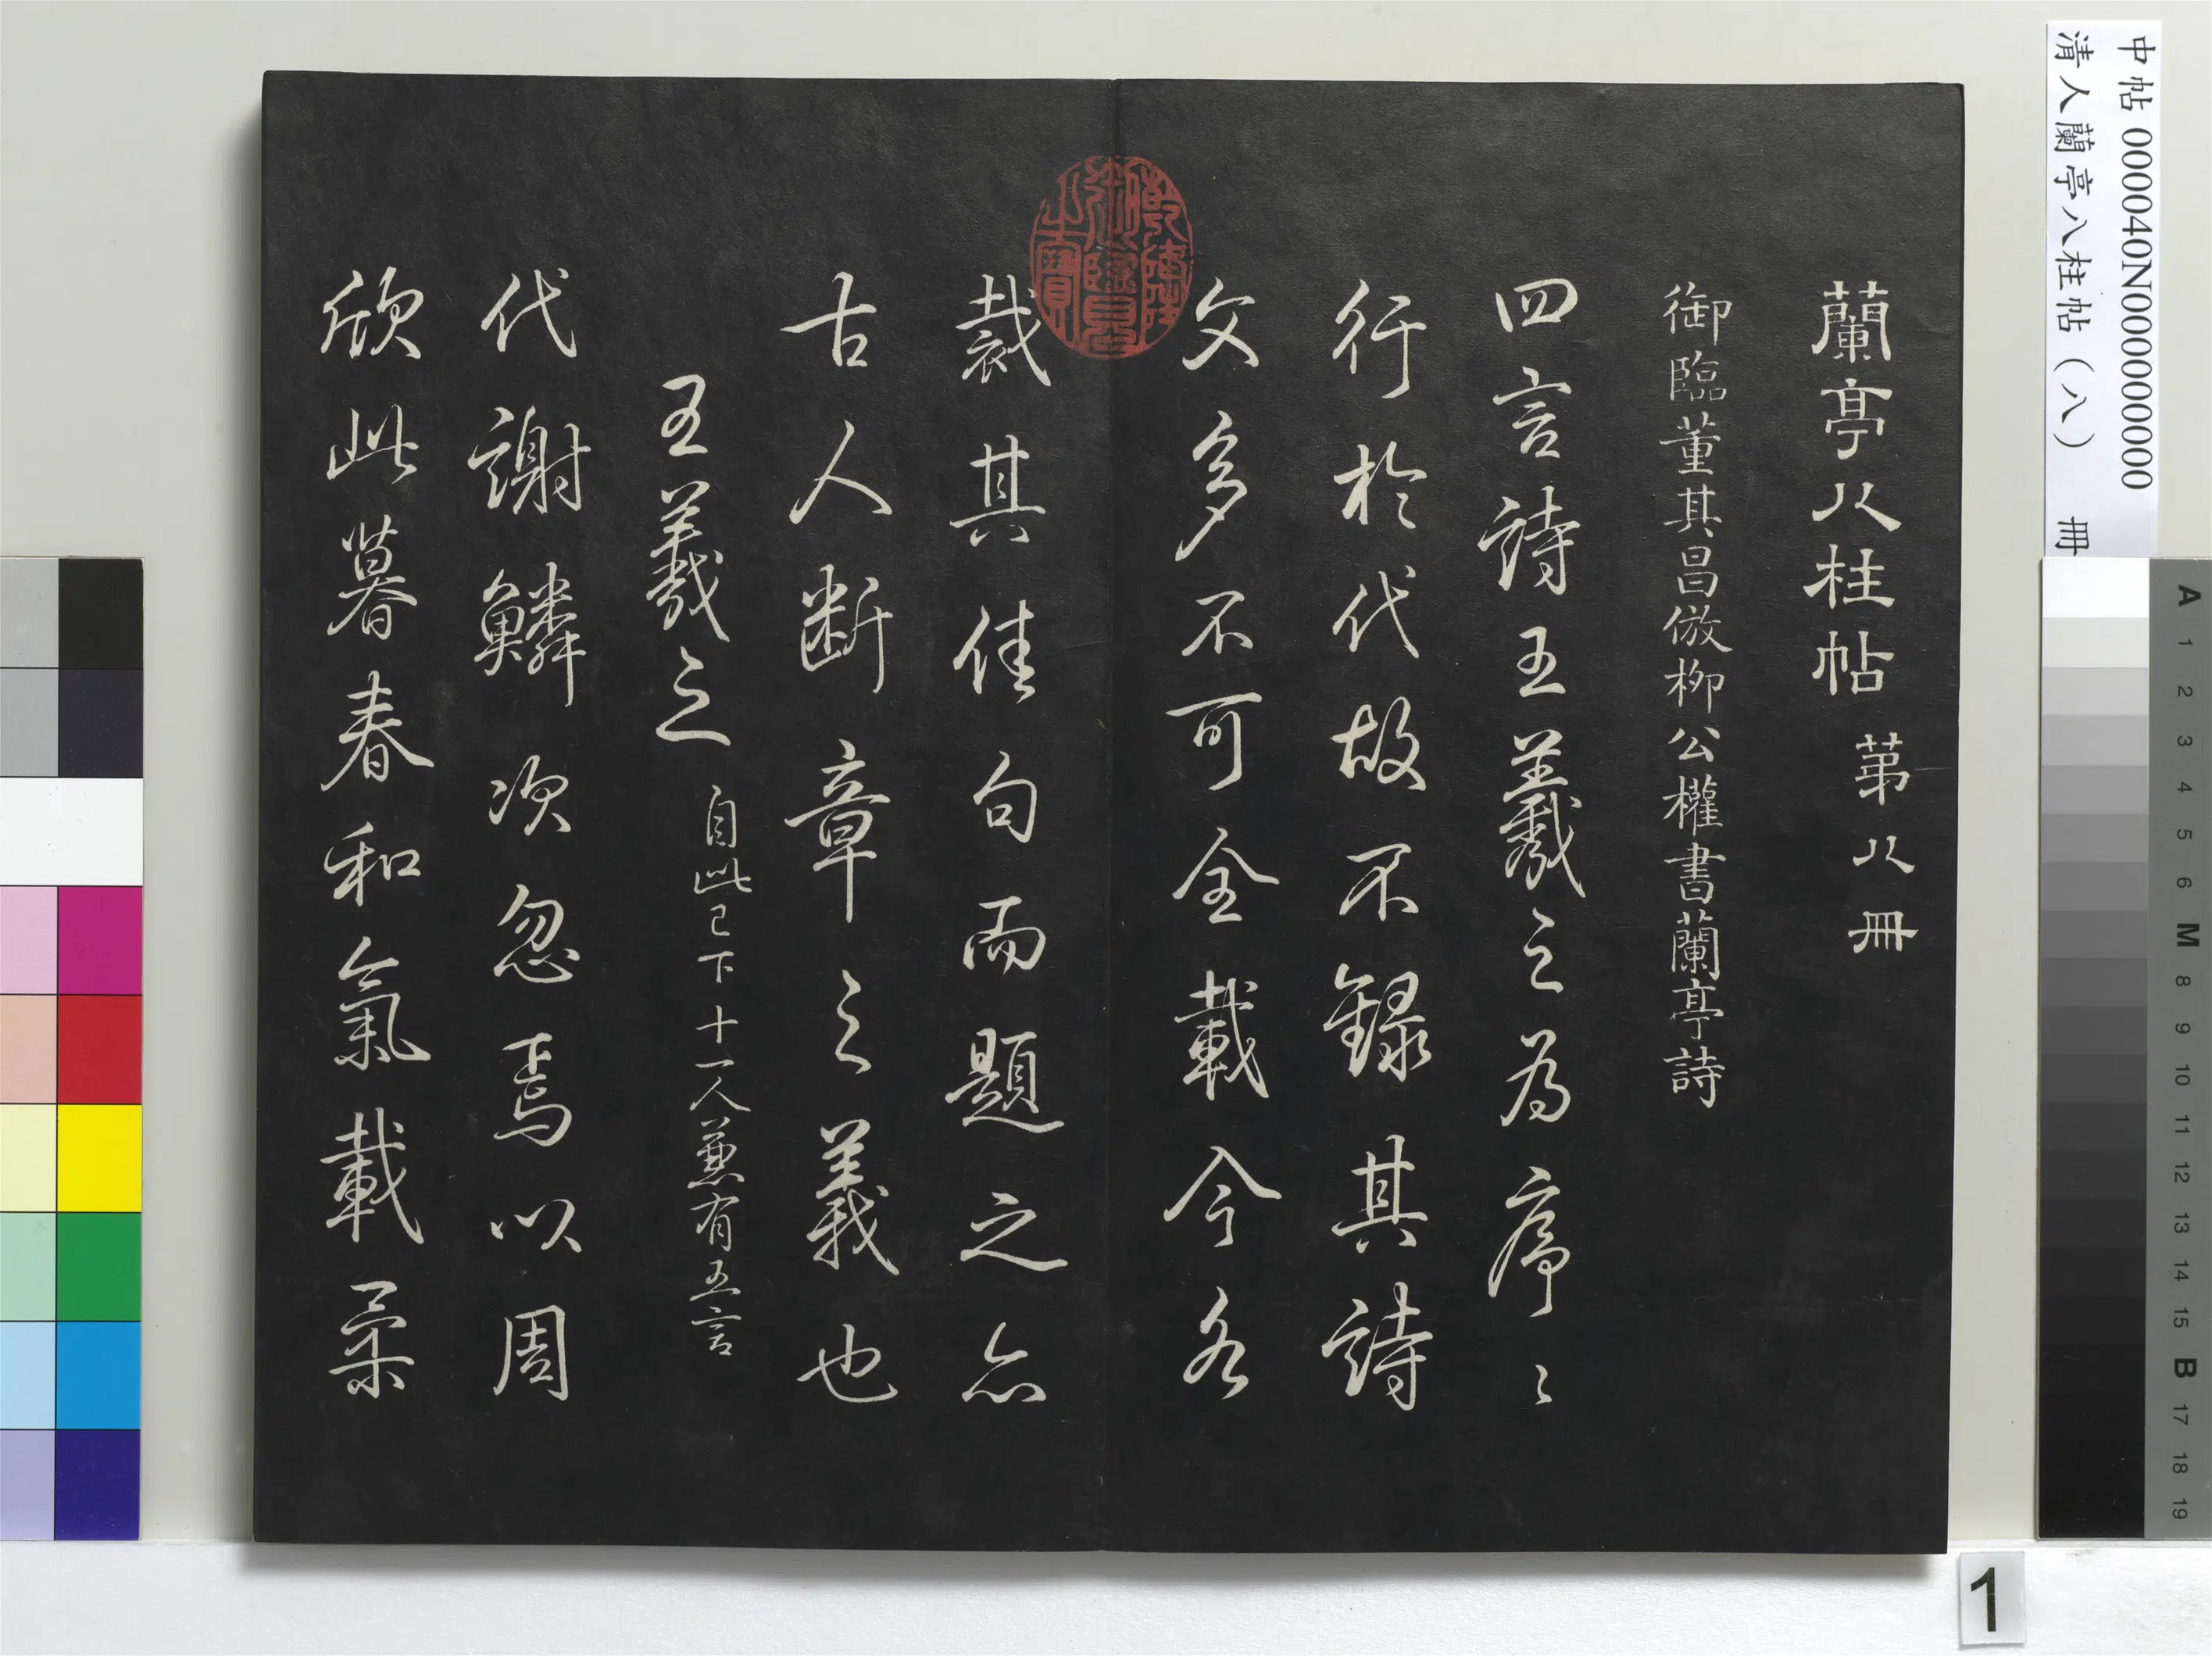 蘭亭八柱帖 第八冊
御臨董其昌倣柳公權書蘭亭詩
四言詩王羲之為序〻
行於代故不錄其詩
文多不可全載今各
裁其佳句而題之亦
古人斷章之義也
王羲之 自此已下十一人兼有五言
代謝鱗次忽焉以周
欣此暮春和氣載柔
乾隆御覽之寶
中帖 000040N000000000
清人蘭亭八柱帖（八） 冊
A 1 2 3 4 5 6 M 8 9 10 11 12 13 14 15 B 17 18 19
1